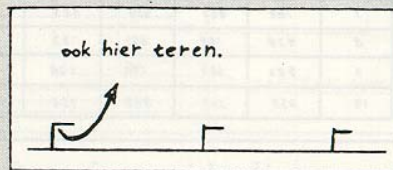 ook hier teren.